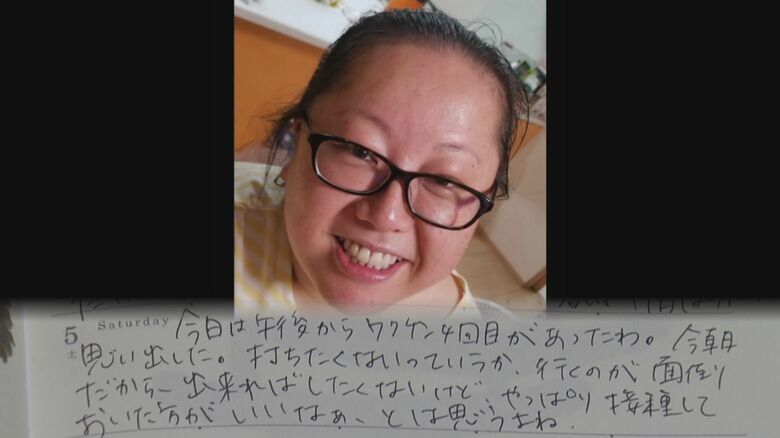 5 Saturday 今日は午後からワクチン4回目があったわ。今朝
土 思い出した。打ちたくないっていうか、行くのが面倒り
だから、出来ればしたくないけど、やっぱり接種して
おいた方がいいなぁ、とは思うよね。